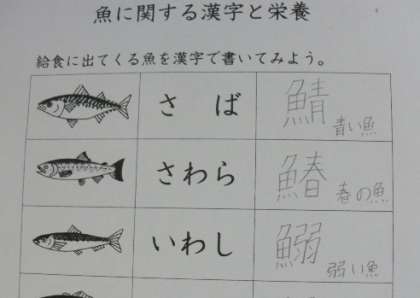 魚に関する漢字と栄養
給食に出てくる魚を漢字で書いてみよう。
さば 鯖 青い魚
さわら 鰆 春の魚
いわし 鰯 弱い魚